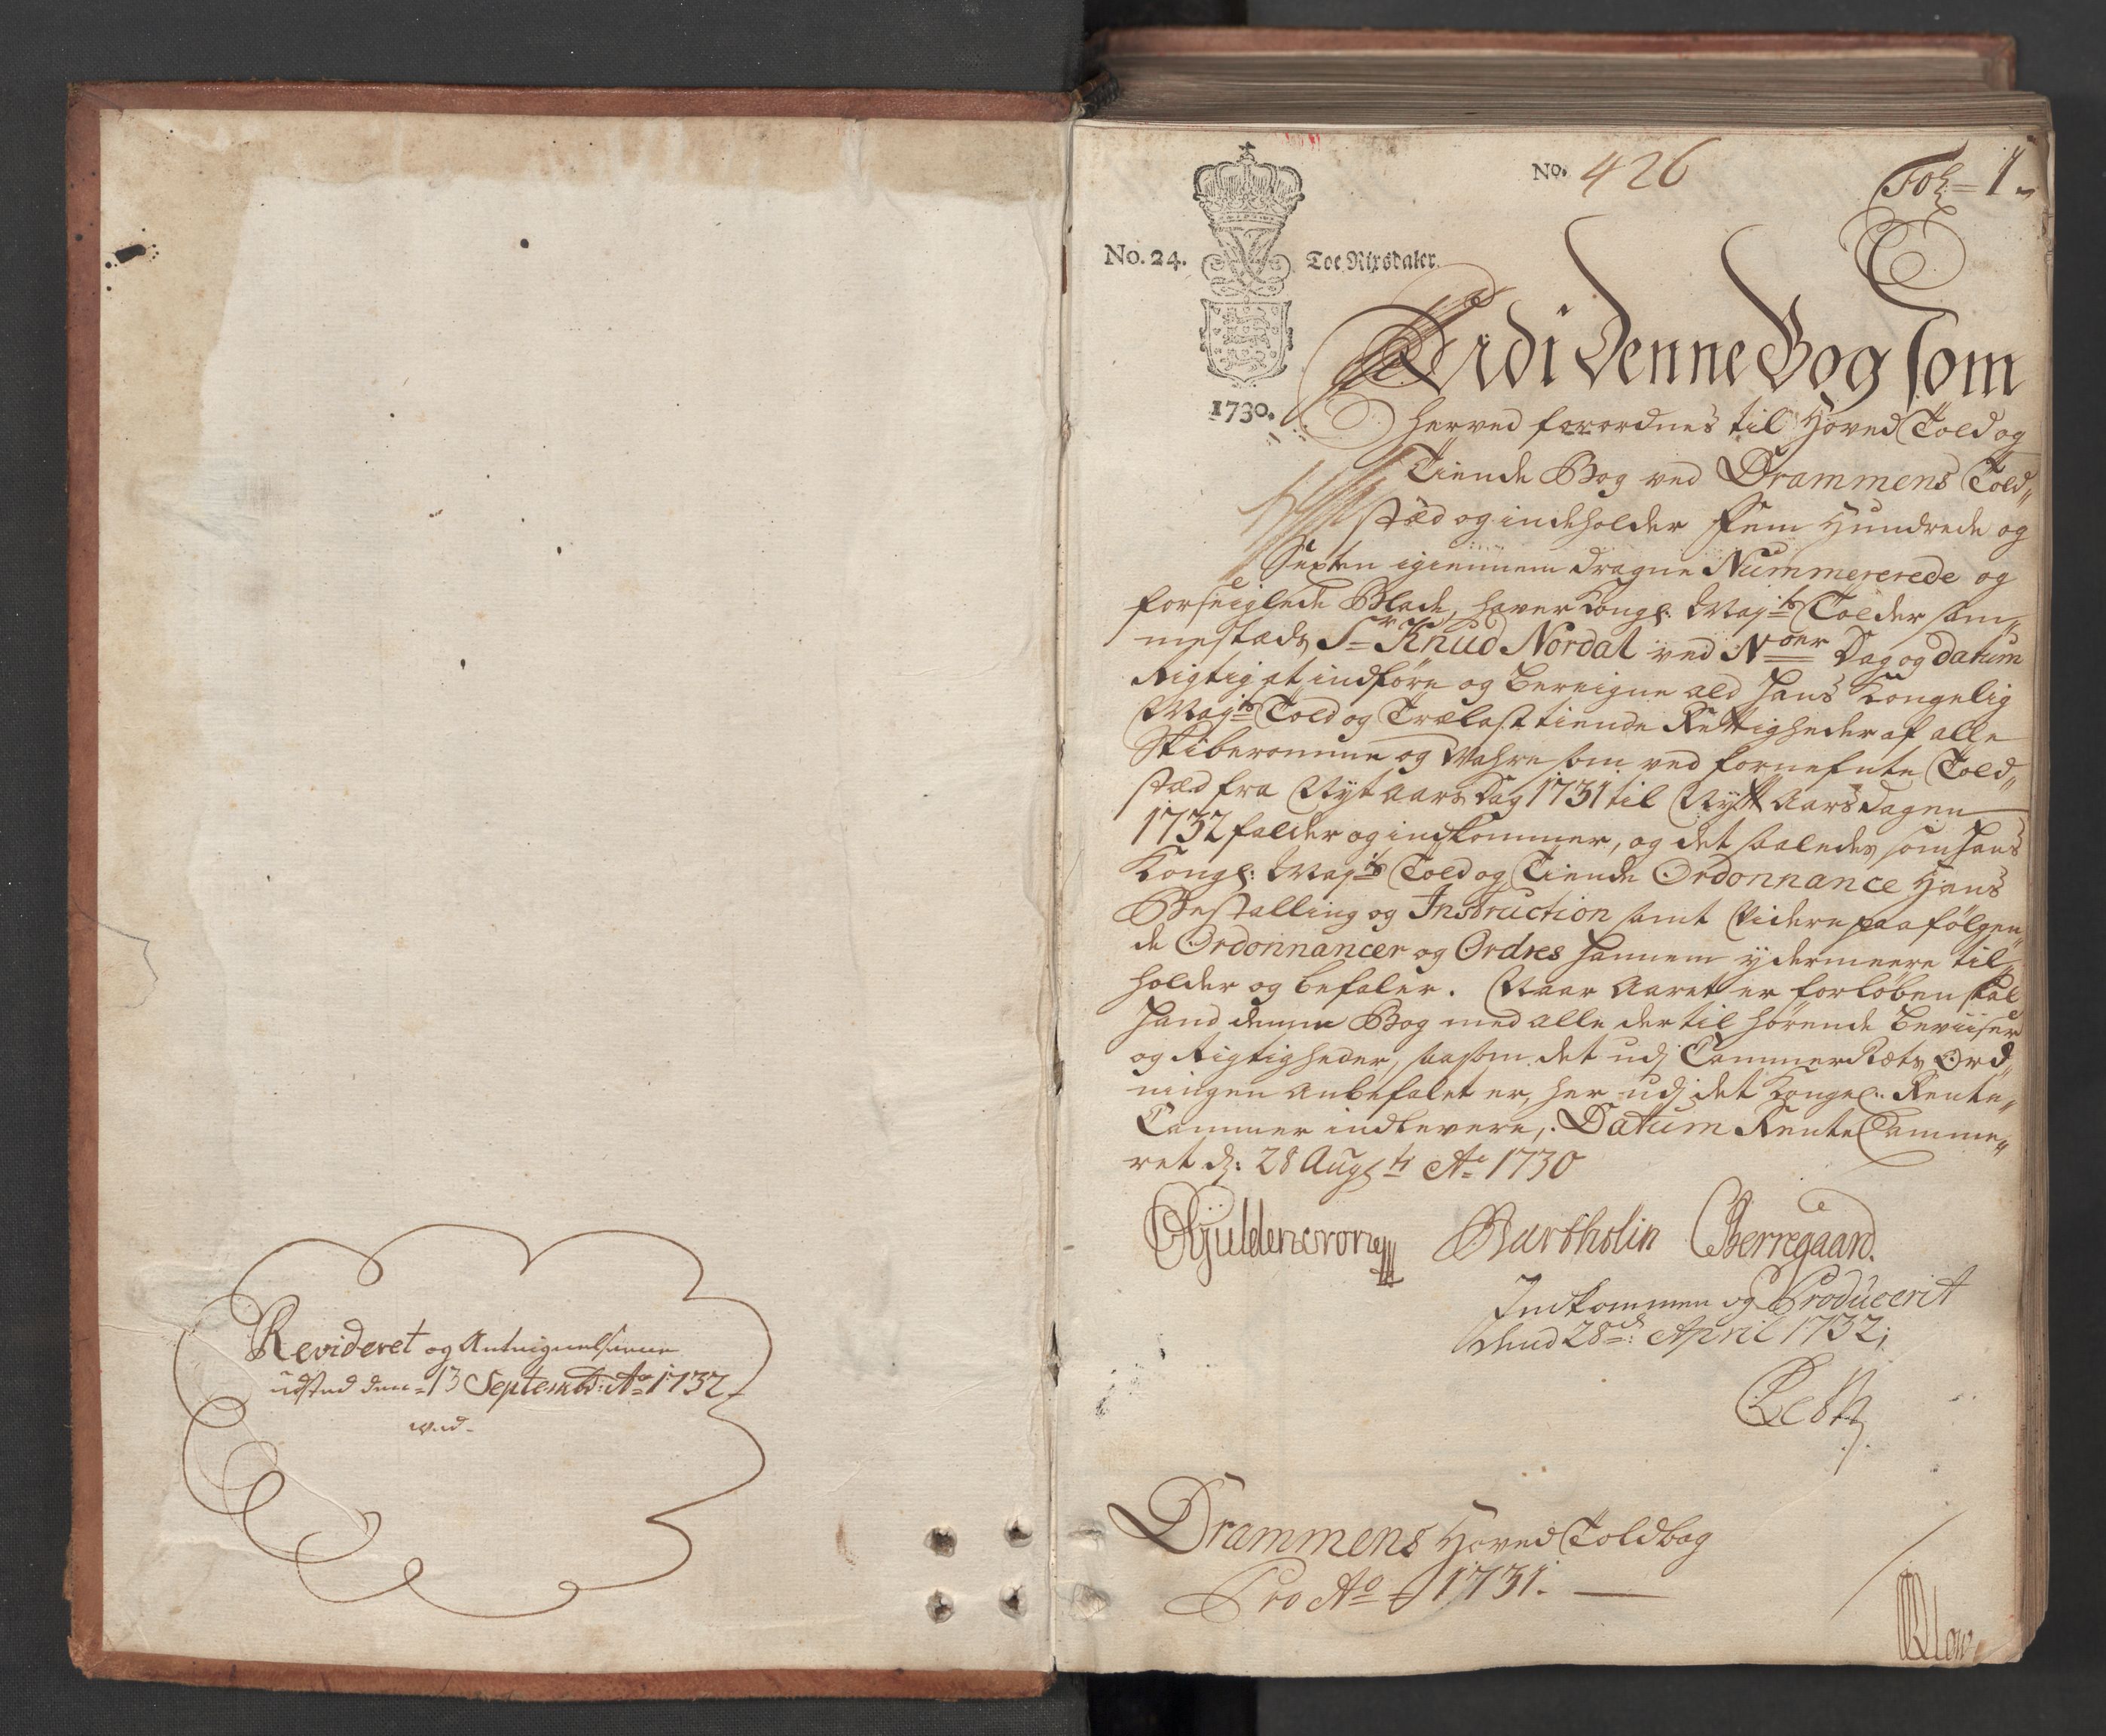 Revideret og Anteignelserne
udsted den 13 Septembr: Ao 1732
ved.
No. 426
Fol = 1
No. 24. Toe Rixsdaler.
1730.
Udi denne Bog som
herved forordnes til Hoved Told og
Tiende Bog ved Drammens Told„
stæd og indeholder Fem Hundrede og
Sexten igiennem dragne Nummererede og
forseiglede Blade, haver Kongl: Mayts Tolder sam„
mestæds Sr Knud Nordal ved Noer Dag og datum
Rigtig at indføre og bereigne ald Hans Kongelig
Mayts Told og Trælast tiende Rettigheder af alle
Skiberomme og Wahre som ved fornefnte Told„
stæd fra Nyt Aars Dag 1731 til Nytt Aarsdagen
1732 falder og indkommer, og det saaledes som Hans
Kongl: Mayts Told og Tiende Ordonnance Hans
Bestalling og Instruction samt Videre paafølgen„
de Ordonnancer og Ordres hannem ydermeere til„
holder og befaler. Naar Aaret er forløben skal
Hand denne Bog med alle der til hørende Beviiser
og Rigtigheder, saasom det udj Cammer Rætz Ord„
ningen anbefalet er, her udj det Kongel: Rente„
Cammer indlevere, Datum Rente Camme„
ret d: 28 Augsti Ao 1730
Gyldencrone Bartholin Berregaard.
Indkommen og Producerit
dend 28de: April 1732;
Drammens Hoved Toldbog
Pro Ao 1731.